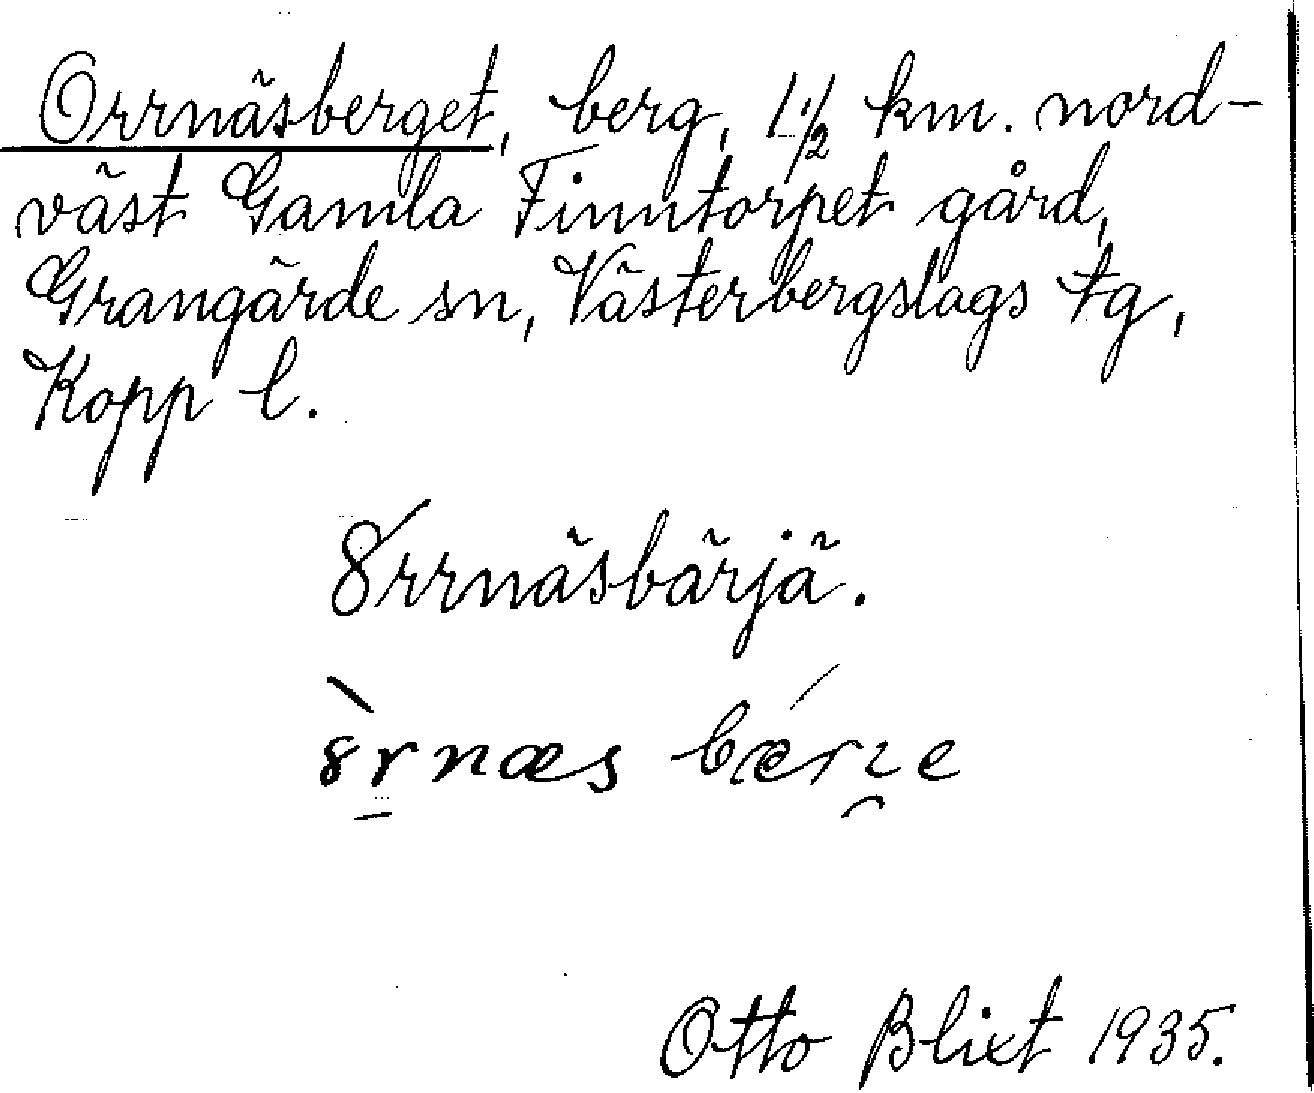 Orrnäsberget, berg, 1 1/2 km. nord-
väst Gamla Finntorpet gård,
Grangärde sn, Västerbergslags tg,
Kopp l.
8́rrnäsbärjä.
8̀rnæs bǽrɪe
Otto Blixt 1935.